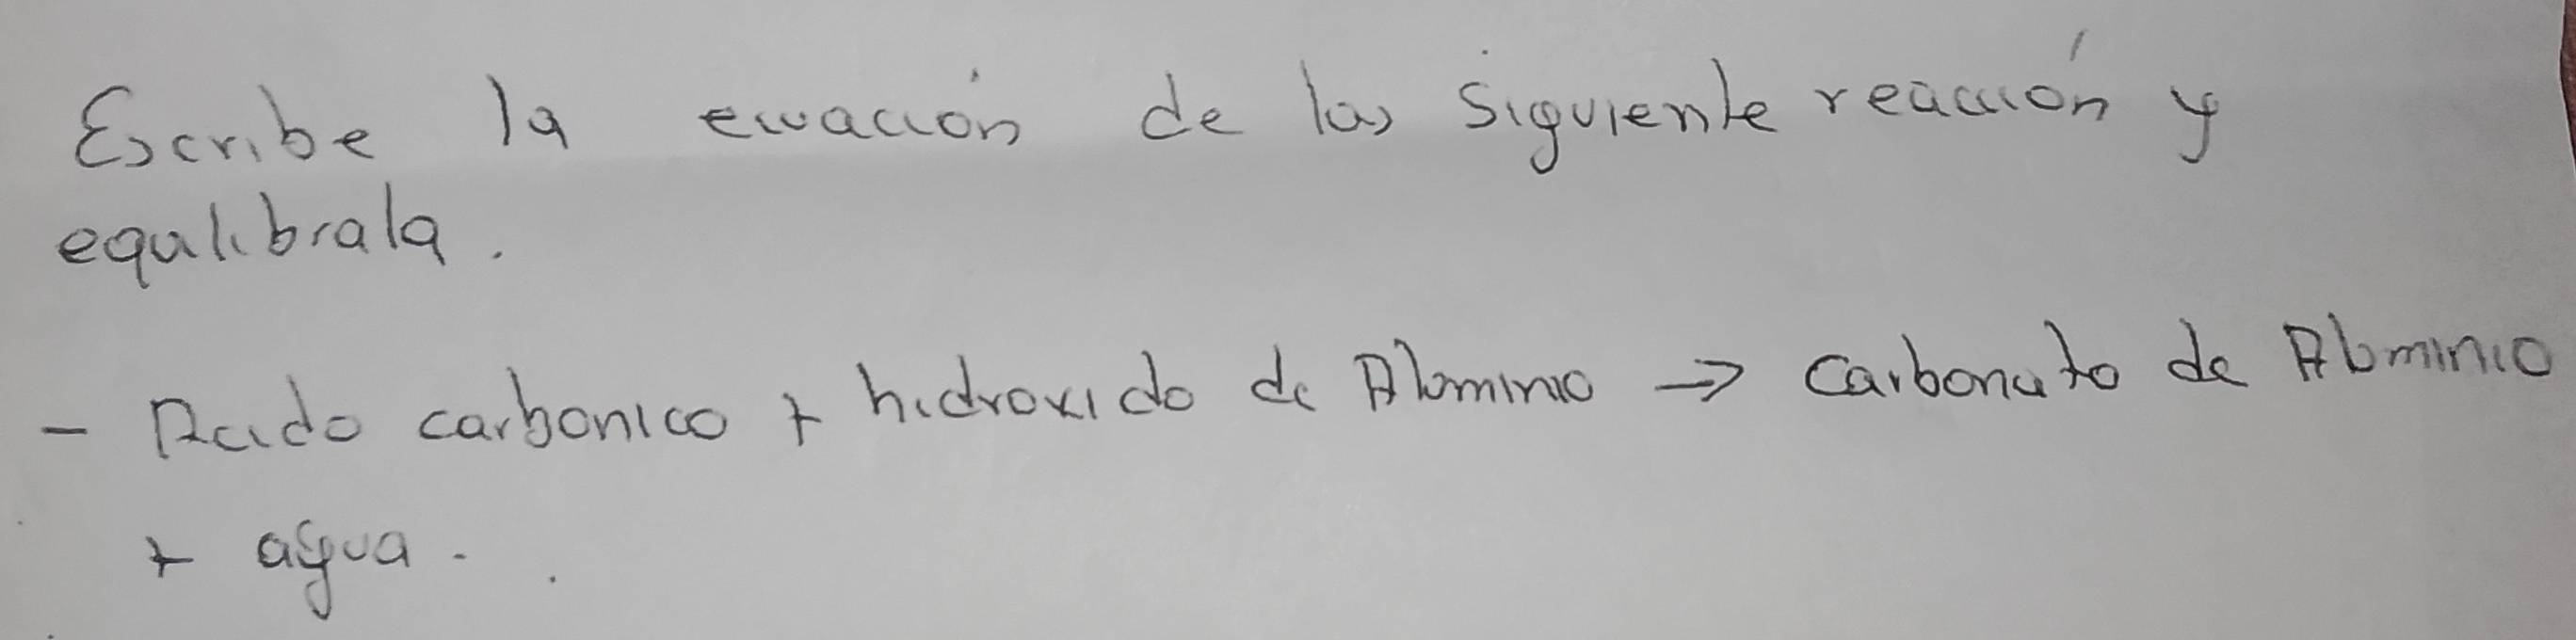 Escribe la ecuación de las siguiente reacción y
equilibrala.
- Acido carbonico + hidroxido de Aluminio → carbonato de Aluminio
+ agua.